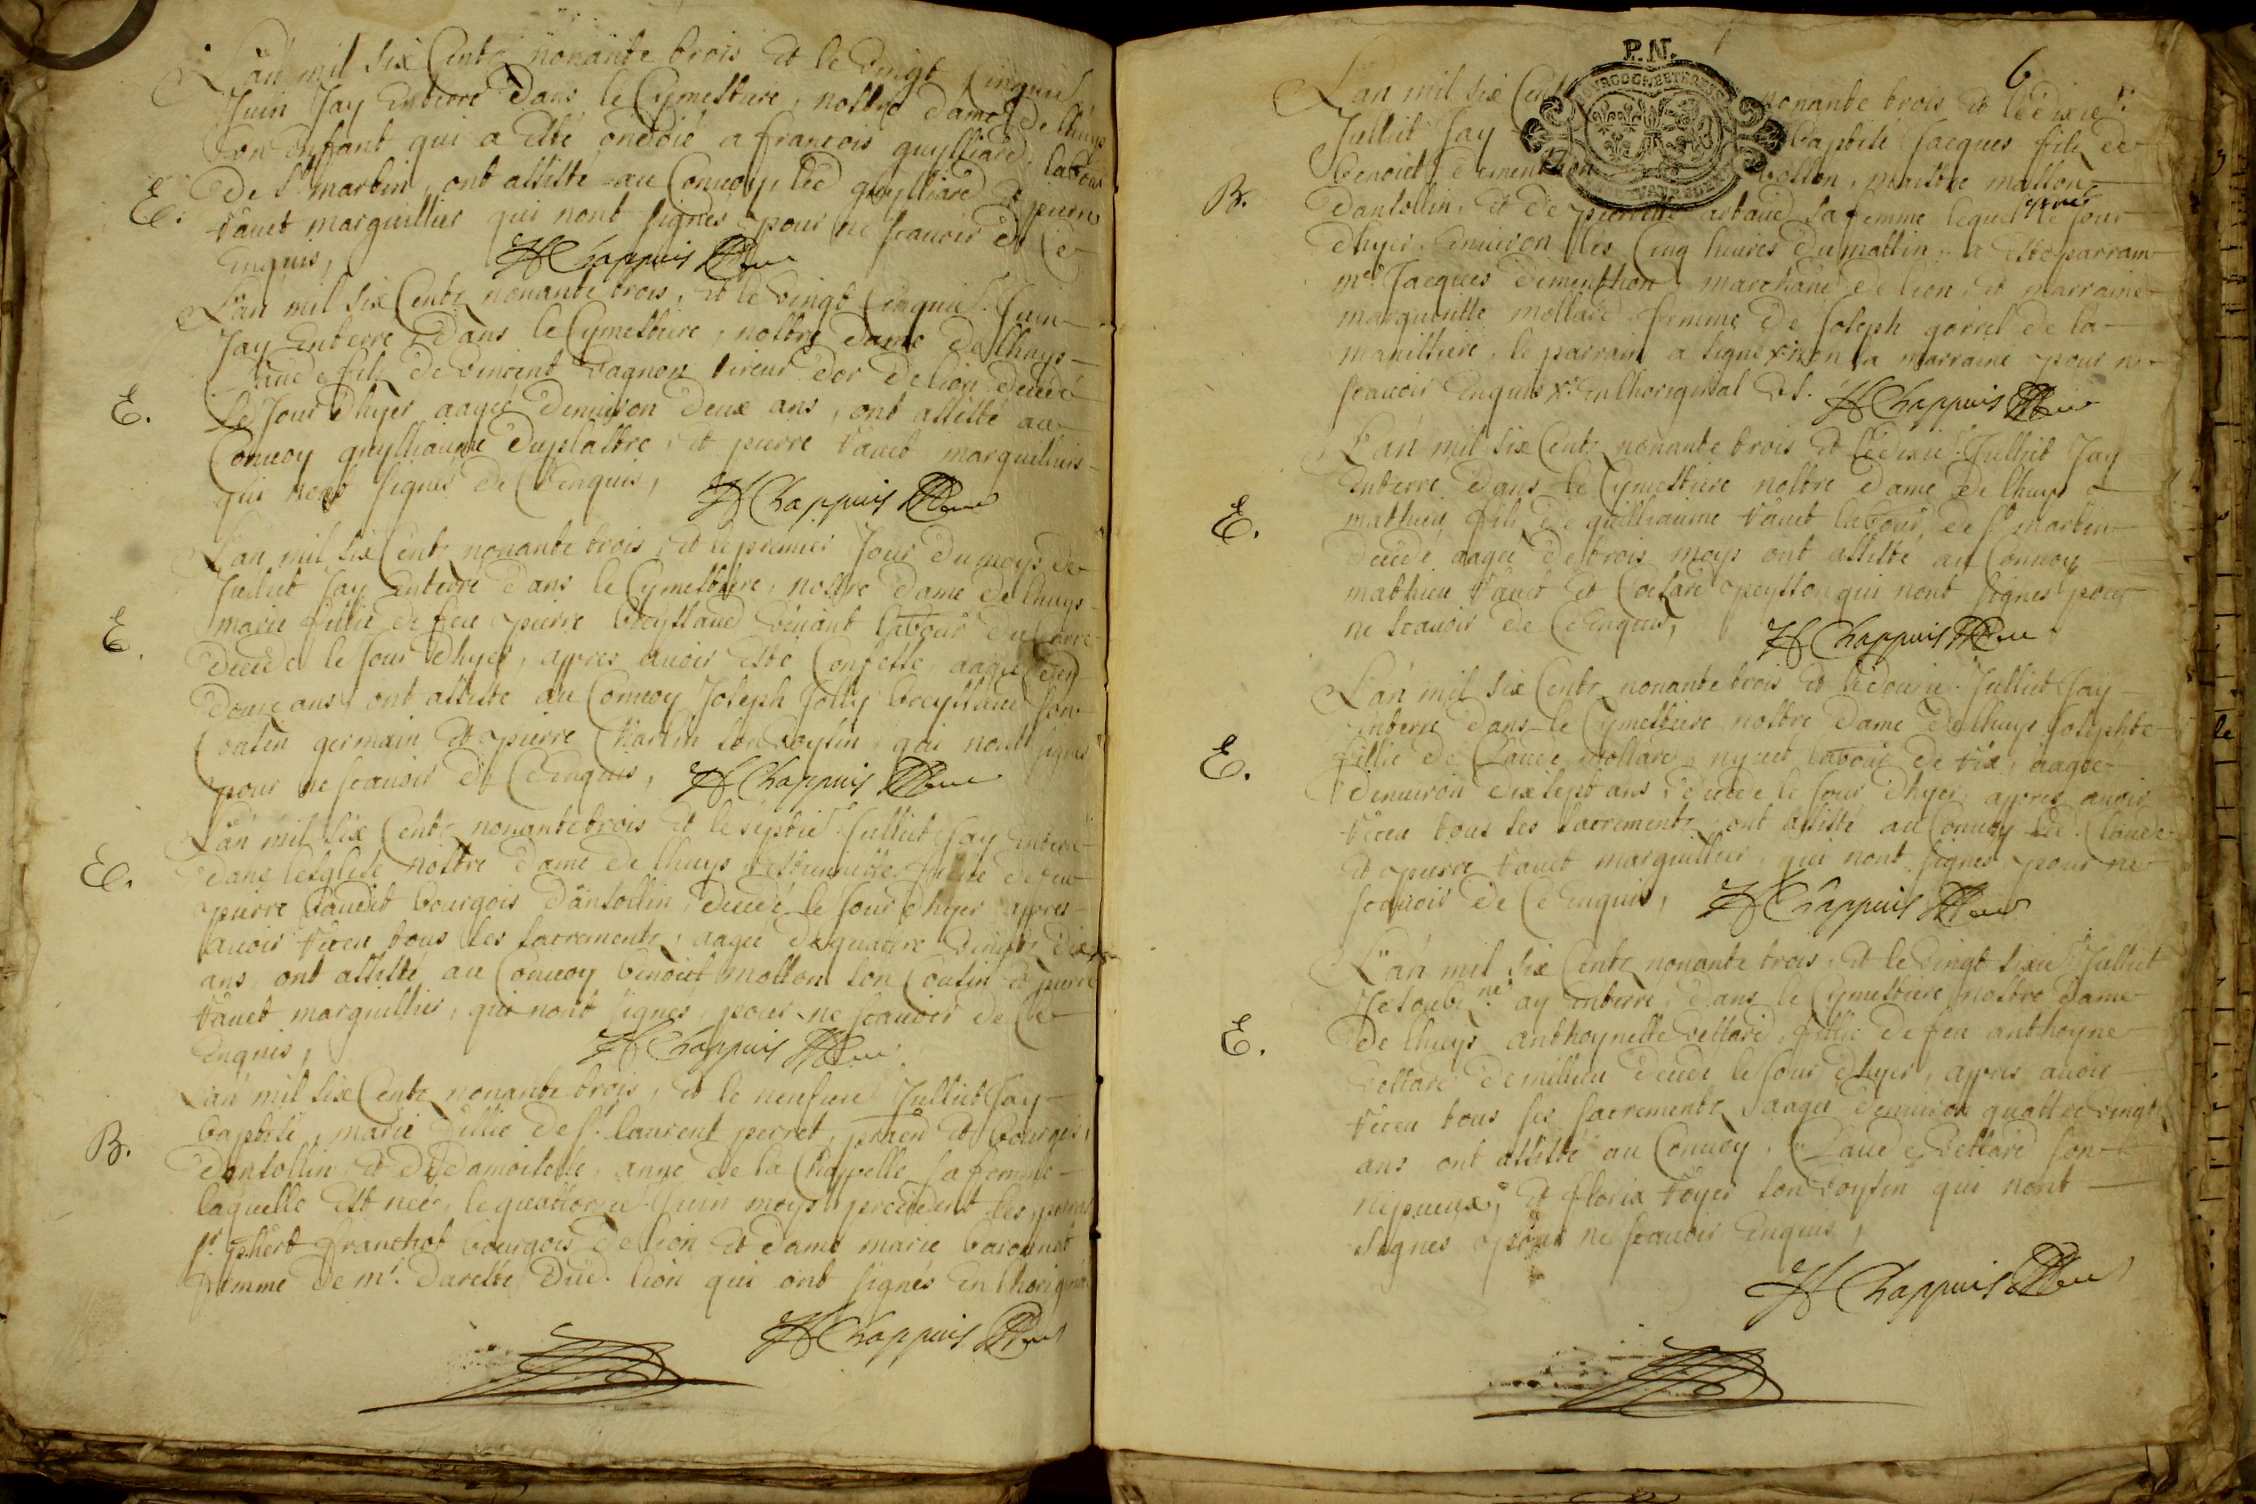 L'an mil six Centz nonante trois et le vingt Cinquie
Juin Jay Enterré dans le Cymettiere nostre dame de lhuys
son Enfant qui a esté ondoié a francois guylliard labour
de St martin, ont assisté au Convoy led guylliard et pierre
vauet marguillier qui nont signés pour ne scavoir de Ce
Enquis, Chappuis
E.
L'an mil six Centz nonante trois, et le vingt Cinquie Juin
Jay Enterré dans le Cymettiere nostre dame de lhuys
Claude filz de vincent vagnon tireur dor de lion decedé
le Jour dhyer aagee denuiron deux ans, ont assisté au
Convoy guylliaume duplastre, et pierre vauet marguilliers
qui nont signés de Ce Enquis, Chappuis
E.
L'an mil six Centz nonante trois, et le premier Jour du moys de
Julliet Jay Enterré dans le Cymettiere, nostre dame de lhuys
marie fillie de feu pierre breyssaud viuant labour du
decedé le Jour dhyer, appres auoir esté Confessé, aagee
douze ans ont assisté au Convoy Joseph Jolly breyssaud son
Cousin germain et pierre martin son voysin, qui nont signés
pour ne scavoir de Ce Enquis, Chappuis
E.
L'an mil six Centz nonante trois et le septie Julliet Jay Enterré
dans lesglise nostre dame de lhuys estiennette fillie de feu
pierre baudet bourgois dansollin, decedé le Jour dhyer appres
auoir receu tous les sacrementz, aagee de quattre vingts dix
ans, ont assisté au Convoy benoict mollon son Cousin et pierre
vauet marguillier, qui nont signés, pour ne scavoir de Ce
Enquis, Chappuis
E.
L'an mil six Centz nonante trois, et le neufuie Julliet Jay
baptisé, marie fillie de sr laurent perret, et bourgois
dansollin et de damoiselle, anne de la Chappelle sa femme
laquelle est neé, le quattorzie Juin moys precedent
sr franchot bourgois de lion et dame marie
femme de mr. dud. lion qui ont signés En lhoriginal
Chappuis
B.
P.N.
6
L'an mil six Centz nonante trois et le dixie
Julliet Jay baptisé Jacques filz de
benoict dementhon mollon, maistre masson
dansollin, et de pierrette arbaud sa femme lequel le Jour
dhyer, Enuiron les Cinq heures du mattin, a esté parrain
me Jacques dementhon marchand de lion, et marraine
marguerite mollard femme de Joseph gorrel de la
le parrain a signé et non la marraine pour ne
scavoir Enquis En lhoriginal Chappuis
B.
L'an mil six Centz nonante trois et le dixie Julliet Jay
Enterré dans le Cymettiere nostre dame de lhuys
mathieu filz de guilliaume vauet labour de St martin
decedé aagee de trois moys ont assisté au Convoy
mathieu vauet et peysson qui nont signés pour
ne scavoir de Ce Enquis, Chappuis
E.
L'an mil six Centz nonante trois et le douzie Julliet Jay
Enterré dans le Cymettiere nostre dame de lhuys Josephte
fillie de Claude mollard labour de aagee
denuiron dix sept ans, decedé le Jour dhyer appres auoir
receu tous les sacrementz, ont assisté au Convoy led. Claude
et pierre vauet marguillier, qui nont signés pour ne
scavoir de Ce Enquis, Chappuis
E.
L'an mil six Centz nonante trois, et le vingt sixie Julliet
Je soubs né ay Enterré, dans le Cymettiere nostre dame
de lhuys anthoynette vettard, fillie de feu anthoyne
vettard de millieu decedé le Jour dhyer, appres auoir
receu tous ses sacrementz aagee denuiron quattre vingt
ans ont assisté au Convoy, Claude vettard son
nepueux, et florix royer son voysin qui nont
signés pour ne scavoir Enquis,
Chappuis
E.